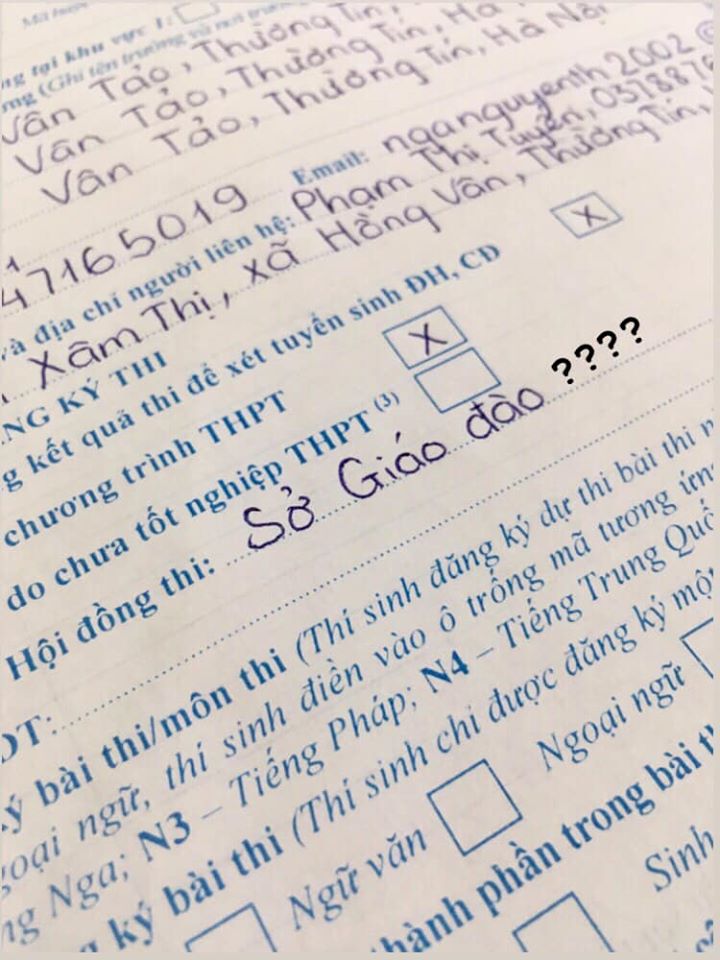 ng tại khu vực 1:
(Ghi tên trường và nơi trường
Vân Tảo, Thường Tín,
Vân Tảo, Thường Tín, Hà
Vân Tảo, Thường Tín, Hà Nội
47165019 Email: nganguyenth2002@
và địa chỉ người liên hệ: Phạm Thị Tuyến, 0378876
Xâm Thị, xã Hồng Vân, Thường Tín,
NG KÝ THI
g kết quả thi để xét tuyển sinh ĐH, CĐ X
chương trình THPT X
do chưa tốt nghiệp THPT (3)
Hội đồng thi: Sở Giáo đào ????
ĐT:
ký bài thi/môn thi (Thí sinh đăng ký dự thi bài thi
goại ngữ, thí sinh điền vào ô trống mã tương ứng
ng Nga; N3 – Tiếng Pháp; N4 – Tiếng Trung Quố
ký bài thi (Thí sinh chỉ được đăng ký mộ
Ngữ văn Ngoại ngữ
thành phần trong bài th
Sinh